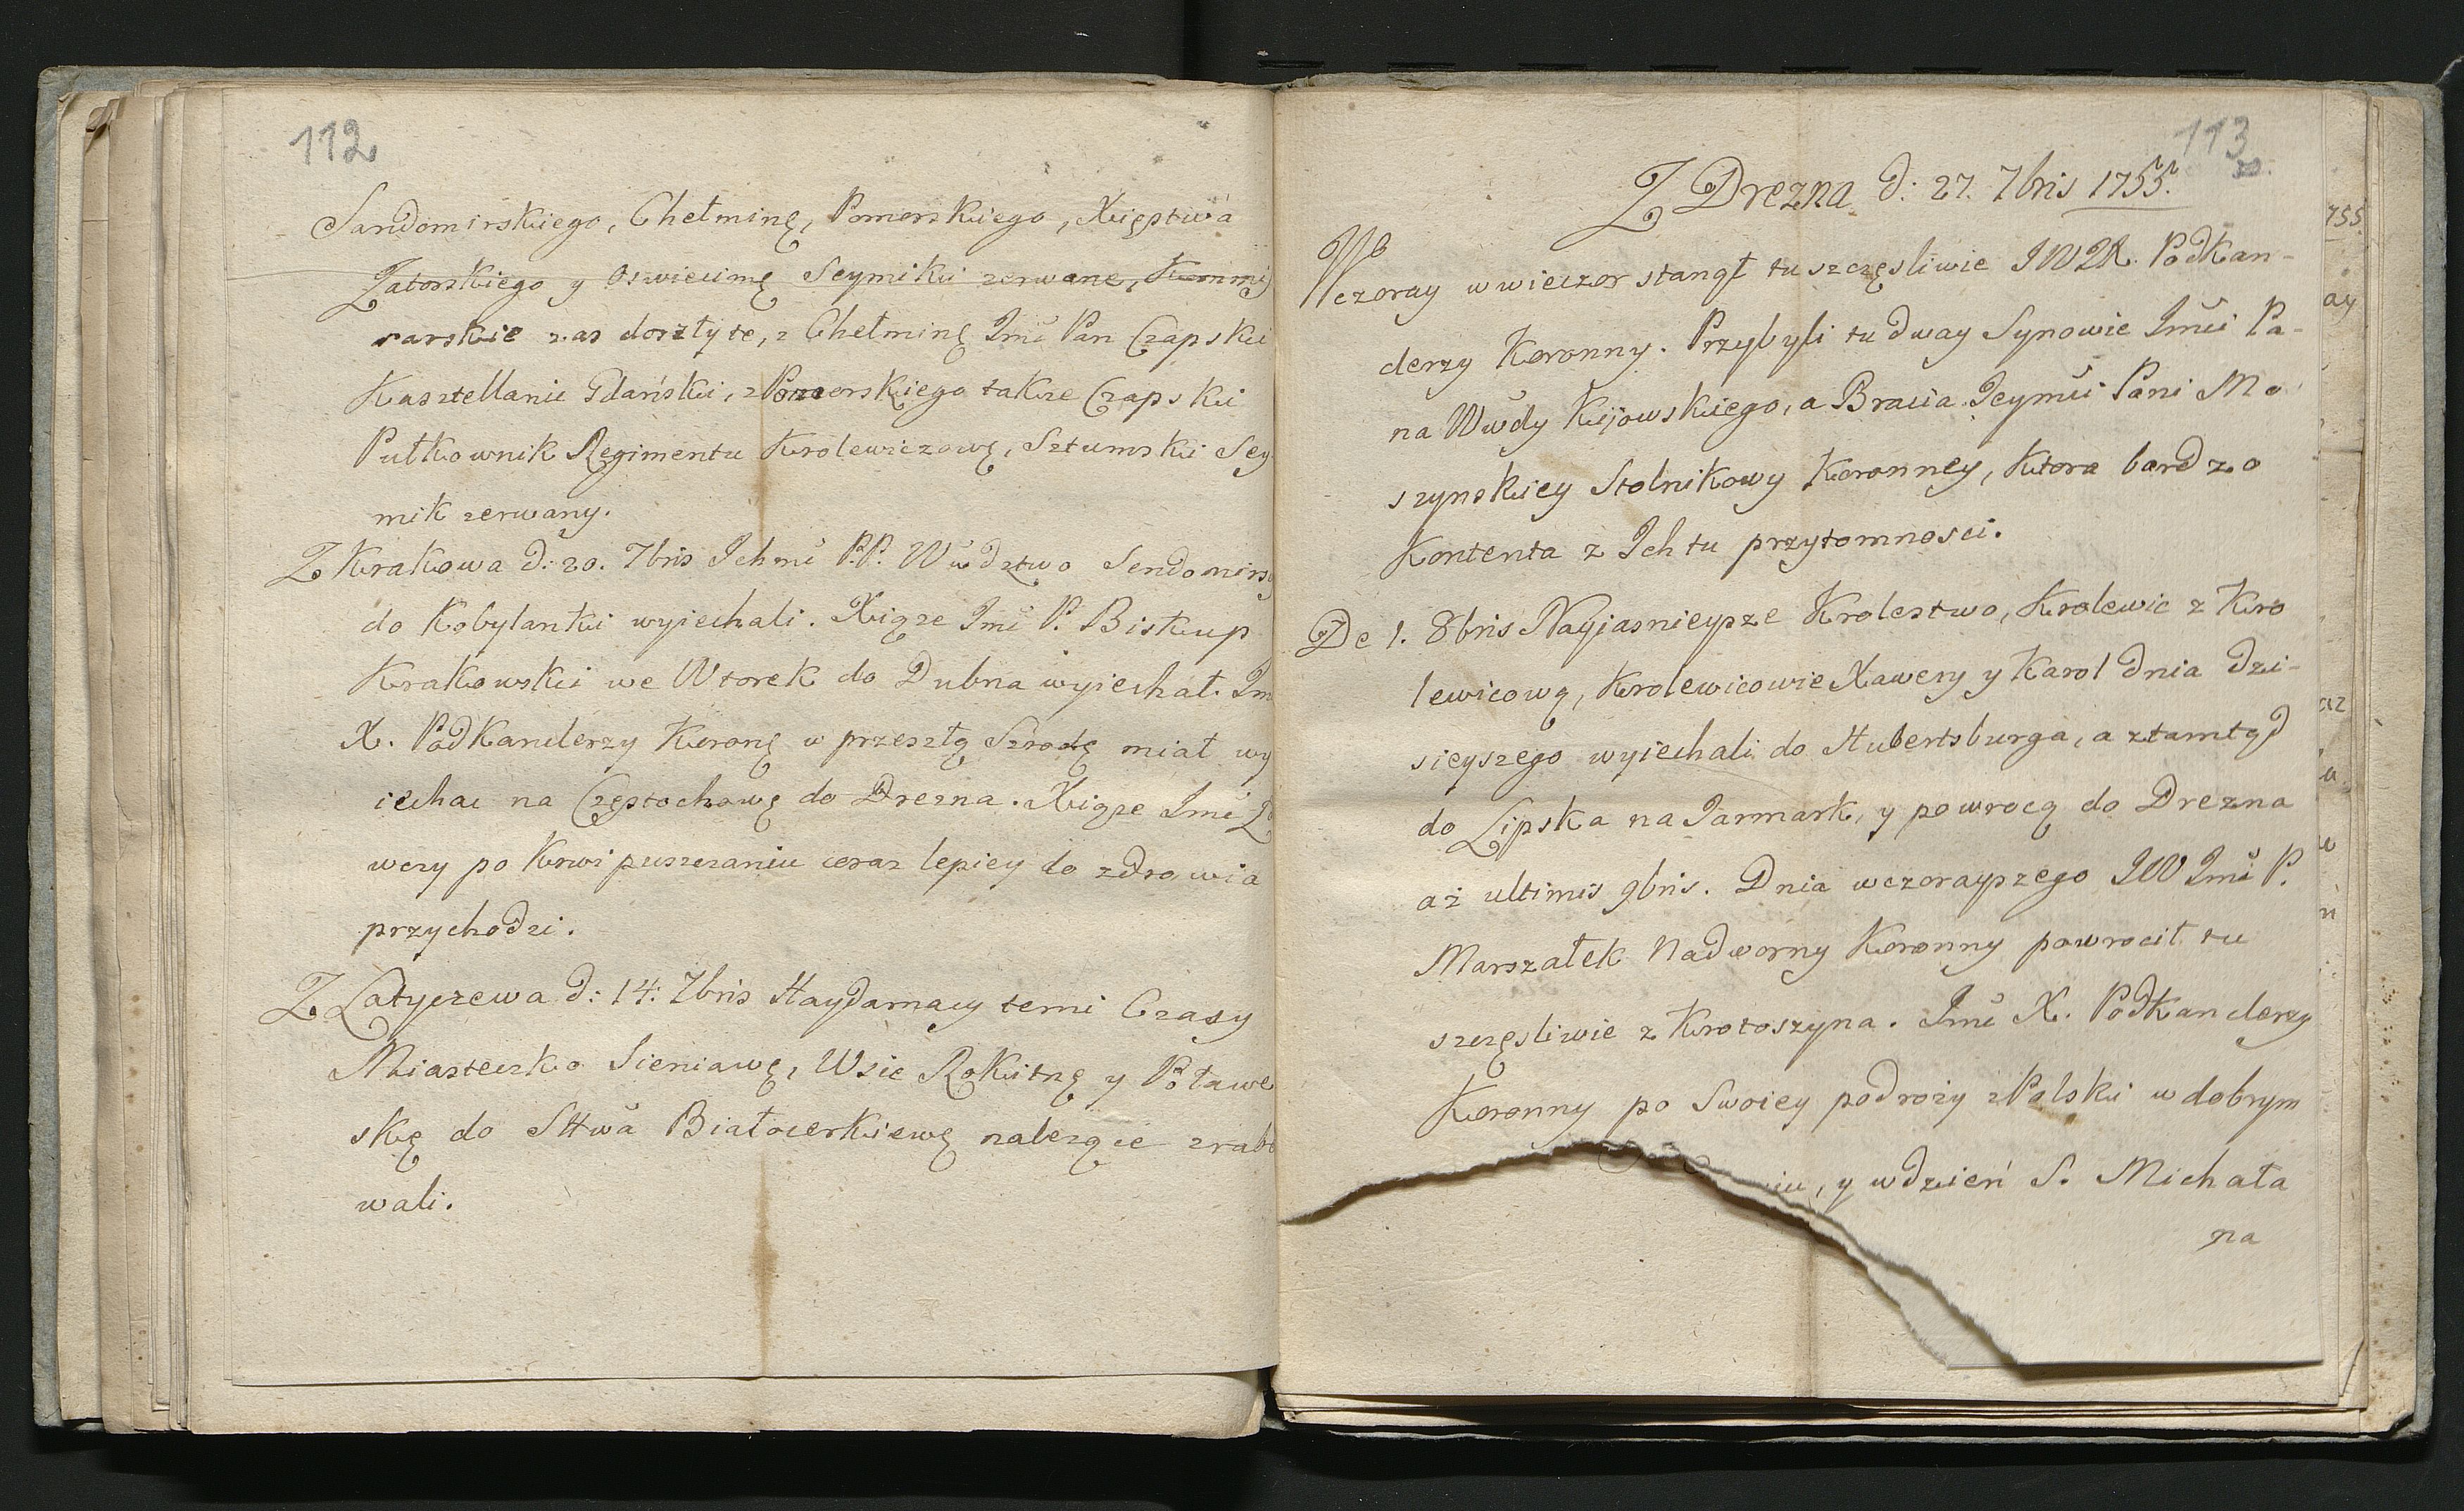 112
Sandomirskiego, Chełminę, Pomorskiego, Xięstwa
Zatorskiego y Oswiecimę Seymiki zerwane, Kommis
sarskie zas doszły te, z Chełminę Jmć Pan Czapski
Kasztellanic Gdański, z Pomorskiego także Czapski
Pułkownik Regimentu Krolewiczowę, Sztumski Sey
mik zerwany.
Z Krakowa d: 20. 7bris Ichmć P.P. Wdztwo Sendomirs
do Kobylanki wyiechali. Xiąże Jmć P. Biskup
Krakowski we Wtorek do Dubna wyiechał. Jm
X. Podkanclerzy Koronę w przeszłą Szrodę miał wy
iechac na Częstochowę do Drezna. Xiąże Jmć
wery po Krwi puszczaniu coraz lepiey do zdrowia
przychodzi.
Z Latyczewa d: 14: 7bris Haydamacy temi Czasy
Miasteczko Sieniawę, Wsie Rokitnę y Potawe
skę do Sttwa Białocerkiewę należące zrabo
wali.
113
Z Drezna d: 27. 7bris 1755.
Wczoray w wieczor stanął tu szczęsliwie JWJX. Podkan-
clerzy Koronny. Przybyli tu dway Synowie Jmći Pa-
na Wwdy Kijowskiego, a Bracia Jeymći Pani Mo
szynskiey Stolnikowy Koronney, Ktora bardzo
Kontenta z Ich tu przytomnosci.
De 1. 8bris Nayjasnieysze Krolestwo, Krolewic z Kro
lewicową, Krolewicowie Xawery y Karol dnia dzi-
sieyszego wyiechali do Hubertsburga, a ztamtąd
do Lipska na Jarmark, y powrocą do Drezna
aż ultimis 9bris. Dnia wczorayszego JW Jmć P.
Marszałek Nadworny Koronny powrocił tu
szczęsliwie z Krotoszyna. Jmć X. Podkanclerzy
Koronny po Swoiey podroży z Polski w dobrym
niu, y w dzień S. Michała
na
755
ay
az